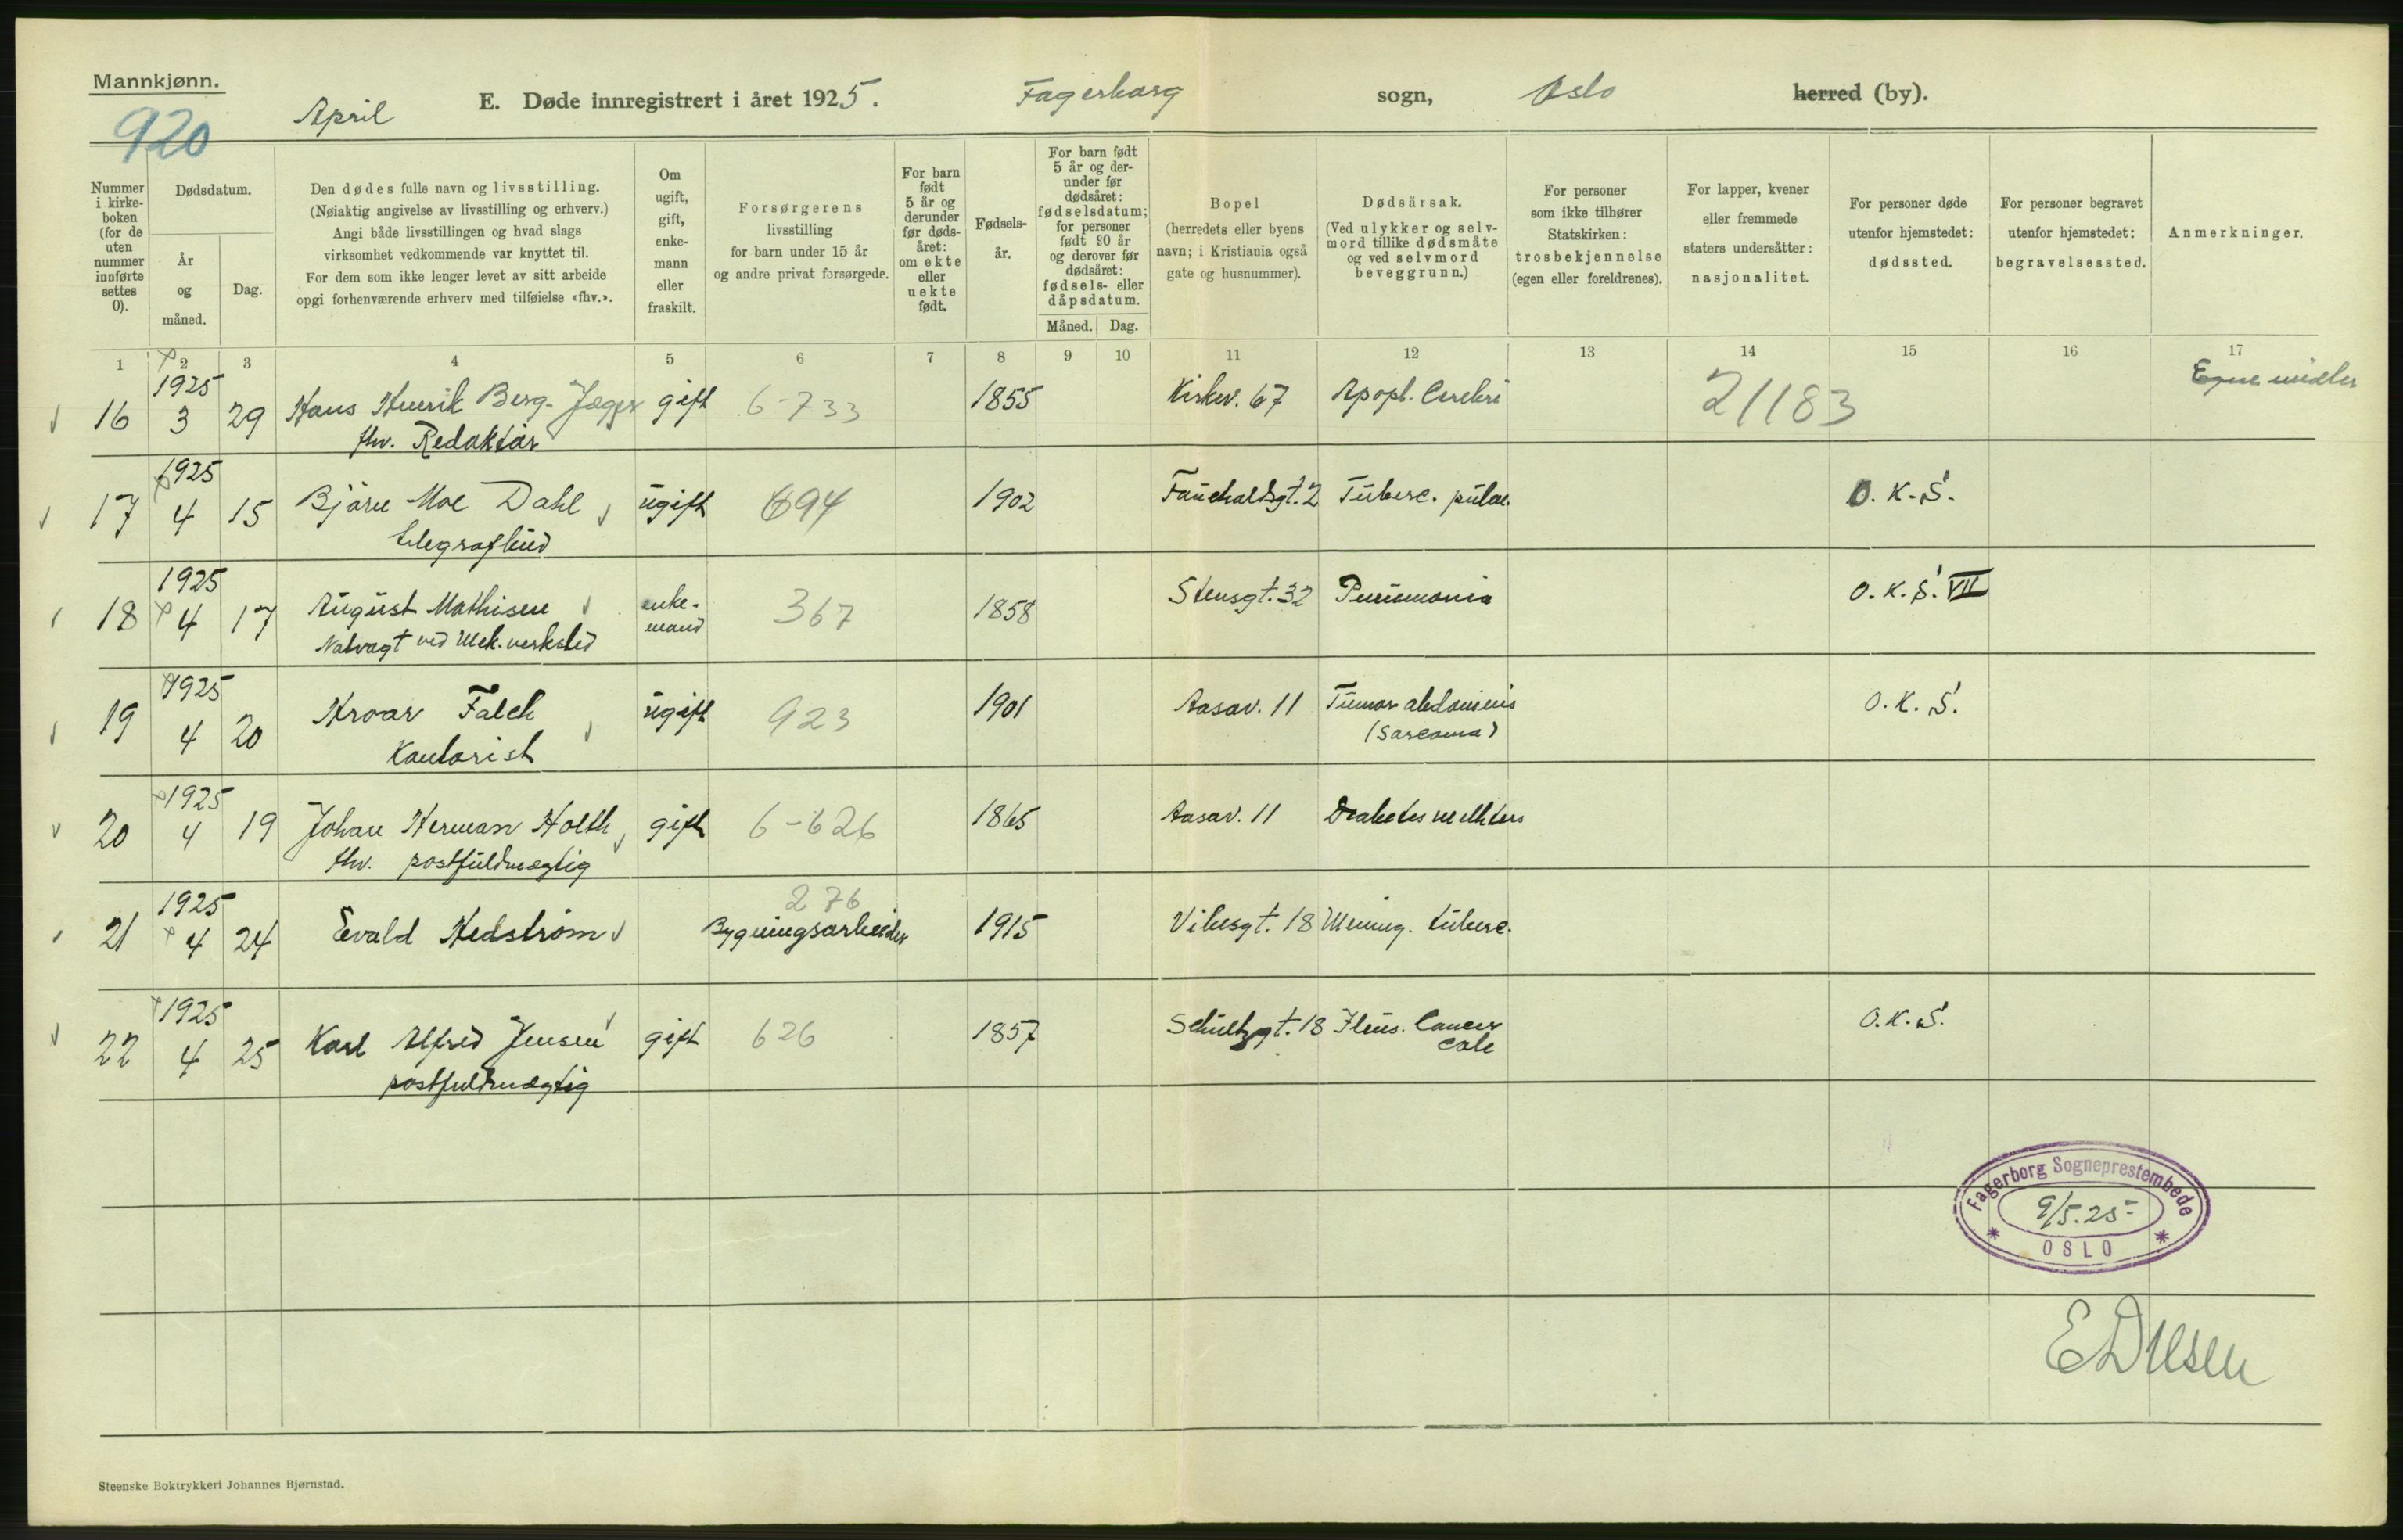 Mannkjønn.
920
April
E. Døde innregistrert i året 1925.
Fagerborg sogn, Oslo herred (by).
Nummer i kirke-boken (for de uten nummer innførte settes 0).
Dødsdatum.
År og måned.
Dag.
Den dødes fulle navn og livsstilling.
(Nøiaktig angivelse av livsstilling og erhverv.)
Angi både livsstillingen og hvad slags
virksomhet vedkommende var knyttet til.
For dem som ikke lenger levet av sitt arbeide
opgi forhenværende erhverv med tilføielse «fhv.».
Om ugift, gift, enke-mann eller fraskilt.
Forsørgerens
livsstilling
for barn under 15 år
og andre privat forsørgede.
For barn født 5 år og derunder før døds-året: om ekte eller uekte født.
Fødsels-år.
For barn født 5 år og der-under før dødsåret: fødselsdatum; for personer født 90 år og derover før dødsåret: fødsels- eller dåpsdatum.
Måned. Dag.
Bopel
(herredets eller byens
navn; i Kristiania også
gate og husnummer).
Dødsårsak.
(Ved ulykker og selv-
mord tillike dødsmåte
og ved selvmord
beveggrunn.)
For personer
som ikke tilhører
Statskirken:
trosbekjennelse
(egen eller foreldrenes).
For lapper, kvener
eller fremmede
staters undersåtter:
nasjonalitet.
For personer døde
utenfor hjemstedet:
dødssted.
For personer begravet
utenfor hjemstedet:
begravelsessted.
Anmerkninger.
1 2 3 4 5 6 7 8 9 10 11 12 13 14 15 16 17
16 1925 3 29 Hans Henrik Berg-Jæger gift 6-733 1855 Kirkev. 67 Apopl. Cerebri 21183 Egne midler
fhv. Redaktør
17 1925 4 15 Bjørn Moe Dahl ugift 694 1902 Fauchaldsgt. 2 Tuberc. pulm. O.K.S.
telegrafbud
18 1925 4 17 August Mathisen enke-mand 367 1858 Stensgt. 32 Pneumonia O.K.S. VII
Natvagt ved Mek. verksted
19 1925 4 20 Hroar Falck ugift 923 1901 Aasav. 11 Tumor abdominis O.K.S.
Kontorist (Sarcoma)
20 1925 4 19 Johan Herman Holth gift 6-626 1865 Aasav. 11 Diabetes mellitus
fhv. postfuldmægtig
276
21 1925 4 24 Evald Hedstrøm Bygningsarbeider 1915 Vibesgt. 18 Mening. tuberc.
22 1925 4 25 Karl Alfred Jensen gift 626 1857 Schultzgt. 18 Ileus. Cancer O.K.S.
postfuldmægtig
Fagerborg Sogneprestembede
9/5.25
OSLO
Steenske Boktrykkeri Johannes Bjørnstad.